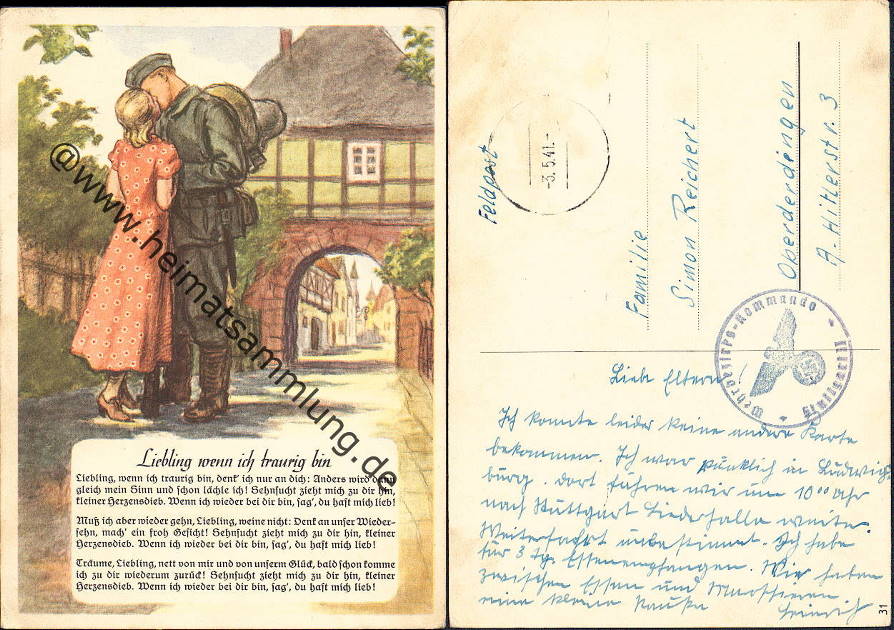 @www.heimatsammlung.de
Liebling wenn ich traurig bin
Liebling, wenn ich traurig bin, denk' ich nur an dich: Anders wird dann
gleich mein Sinn und schon lächle ich! Sehnsucht zieht mich zu dir hin,
kleiner Herzensdieb. Wenn ich wieder bei dir bin, sag', du hast mich lieb!
Muß ich aber wieder gehn, Liebling, weine nicht: Denk an unser Wieder-
sehn, mach' ein froh Gesicht! Sehnsucht zieht mich zu dir hin, kleiner
Herzensdieb. Wenn ich wieder bei dir bin, sag', du hast mich lieb!
Träume, Liebling, nett von mir und von unserm Glück, bald schon komme
ich zu dir wiederum zurück! Sehnsucht zieht mich zu dir hin, kleiner
Herzensdieb. Wenn ich wieder bei dir bin, sag', du hast mich lieb!
Feldpost
-3.5.41.-
Familie
Simon Reichert
Oberderdingen
A. Hitlerstr. 3
Wehrbezirks-Kommando
Liebe Eltern!
Ich konnte leider keine andere Karte
bekommen. Ich war pünklich in Ludwigs-
burg. dort fuhren wir um 10 00 Uhr
nach Stuttgart Liederhalle weiter.
Weiterfahrt unbestimmt. Ich habe
für 3 Tg. Essenempfangen. Wir haben
zwischen Essen und Marschieren
eine kleine Pause
Heinrich
31